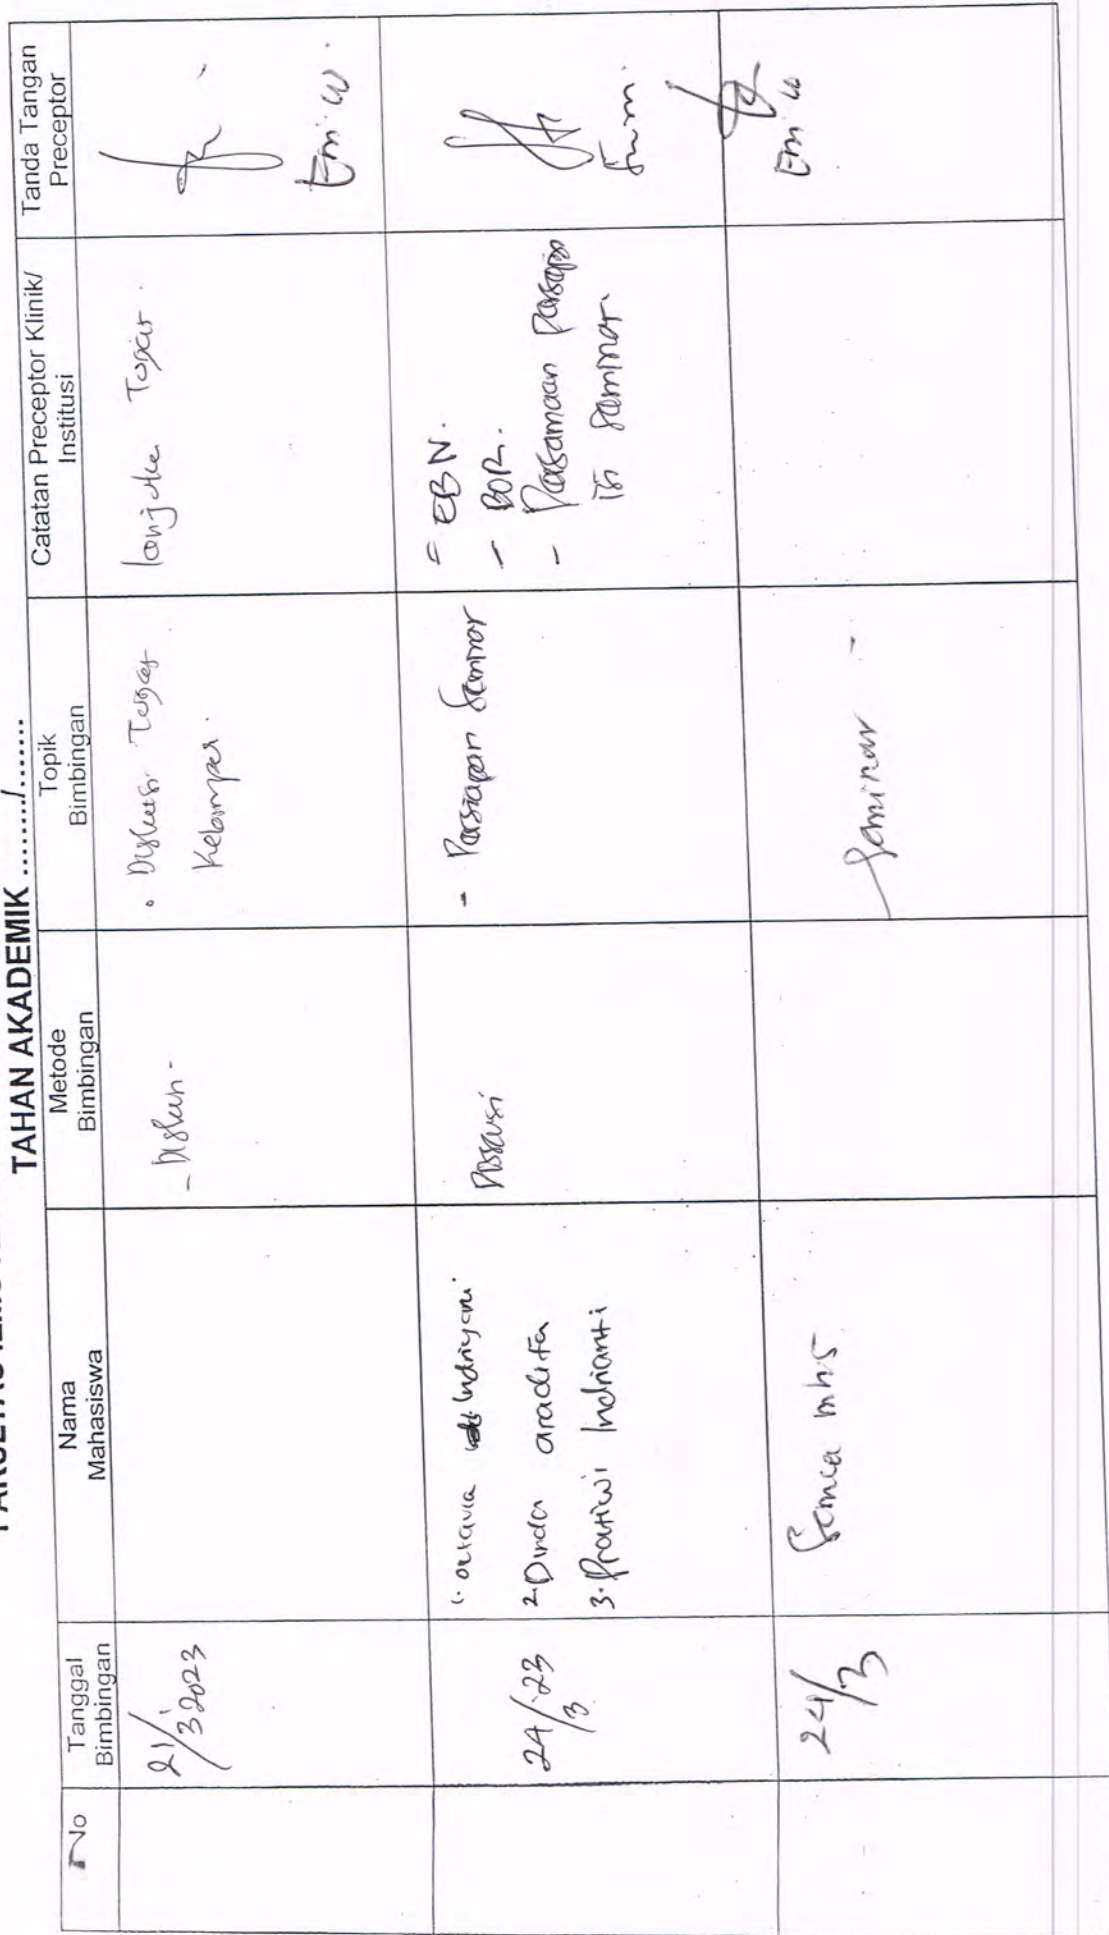 TAHAN AKADEMIK ......../.......
No
Tanggal
Bimbingan
Nama
Mahasiswa
Metode
Bimbingan
Topik
Bimbingan
Catatan Preceptor Klinik/
Institusi
Tanda Tangan
Preceptor
21/3 2023
- Diskusi
• Diskusi Tugas
Kelompok.
lanjutke Tugas.
Emi w.
24/3 23
1. octavia Indriyani
2. Dinda aradita
3. Pratiwi Indrianti
Diskusi
- Persiapan Seminar
- EBN.
- BOR.
- Persamaan persepsi
seminar.
Emi
24/3
Semua mhs
Seminar -
Emi w